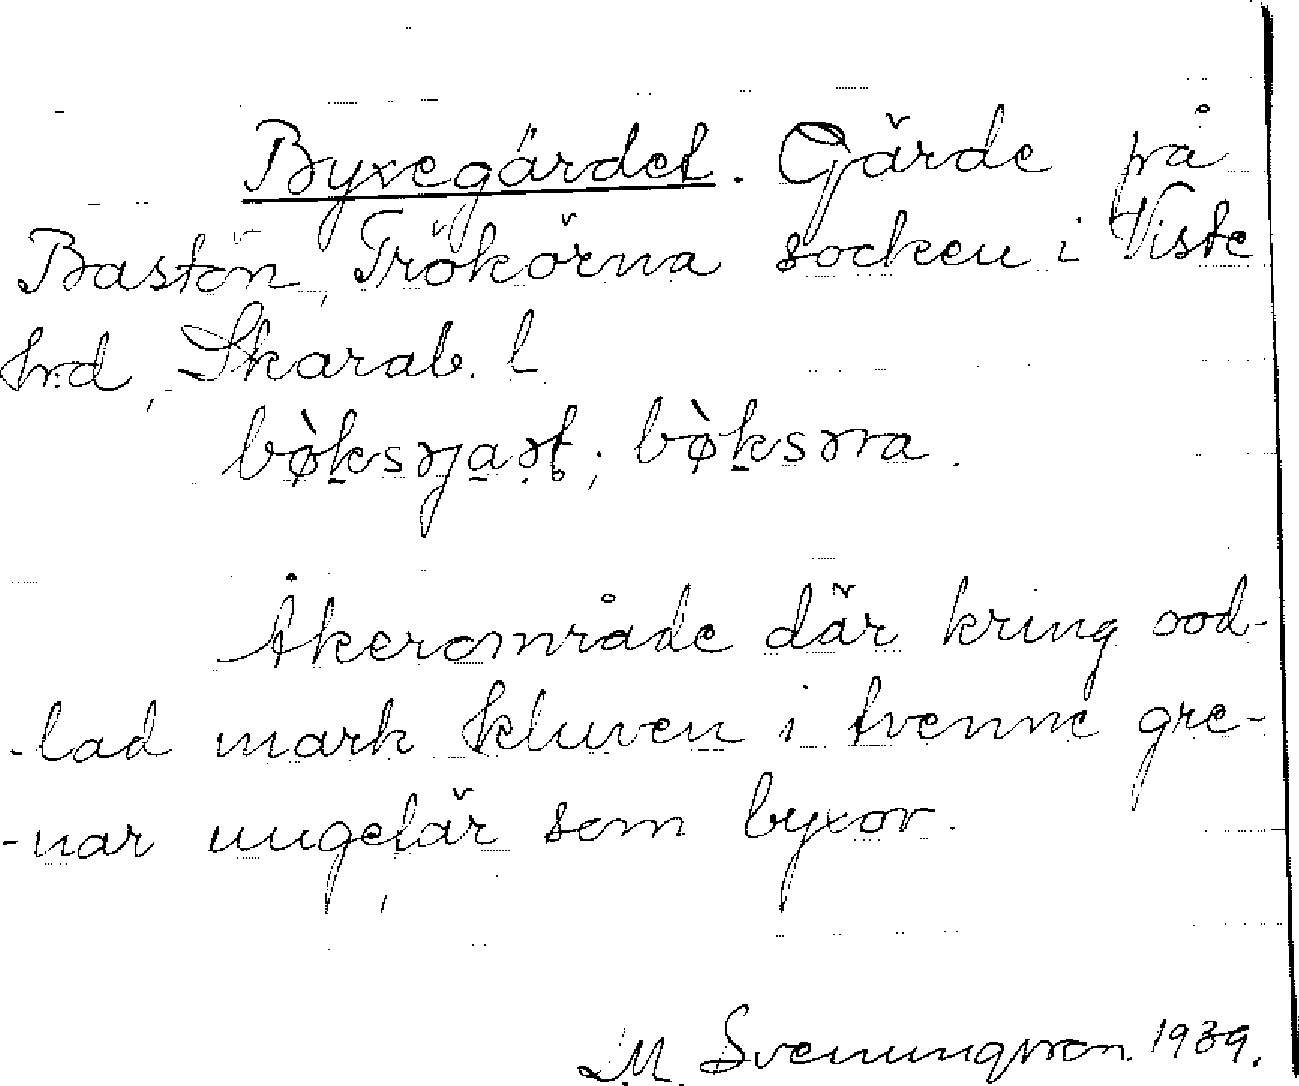 Byxegärdet. Gärde på
Bastön, Trökörna socken i Viste
hrd, Skarab. l
bø̀ksɿjaɿt; bø̀ksɿra.
Åkerområde där kring ood-
-lad mark kluven i tvenne gre-
-nar ungefär som byxor.
M. Svenungsson. 1939.